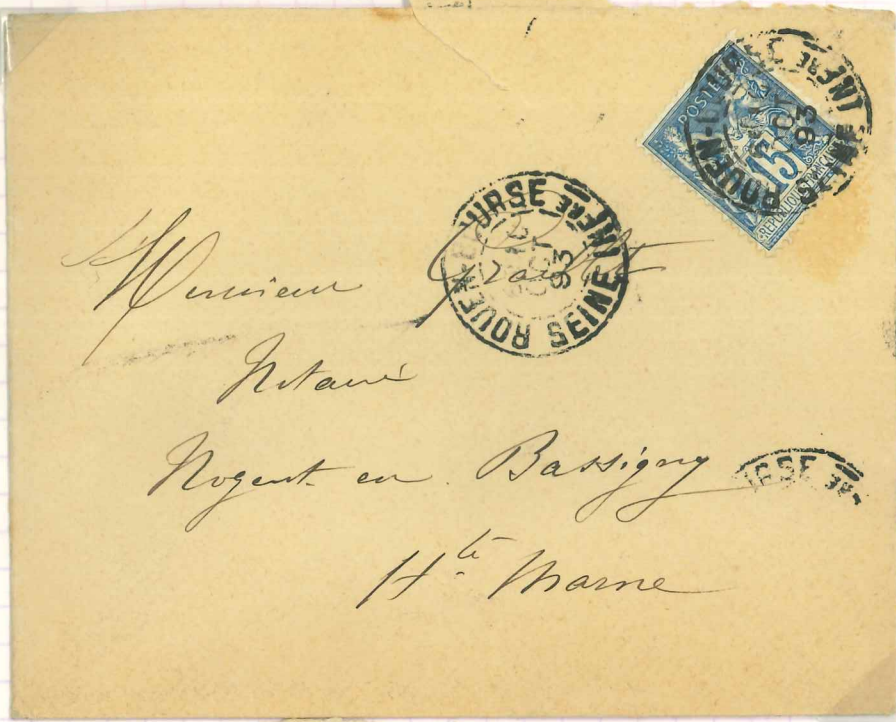 POSTES
15
REPUBLIQUE FRANCAISE
ROUEN-BOURSE SEINE INFRE
OCT
93
ROUEN-BOURSE SEINE INFRE
OCT
93
Monsieur
Notaire
Nogent-en Bassigny
URSE RE
Hte Marne